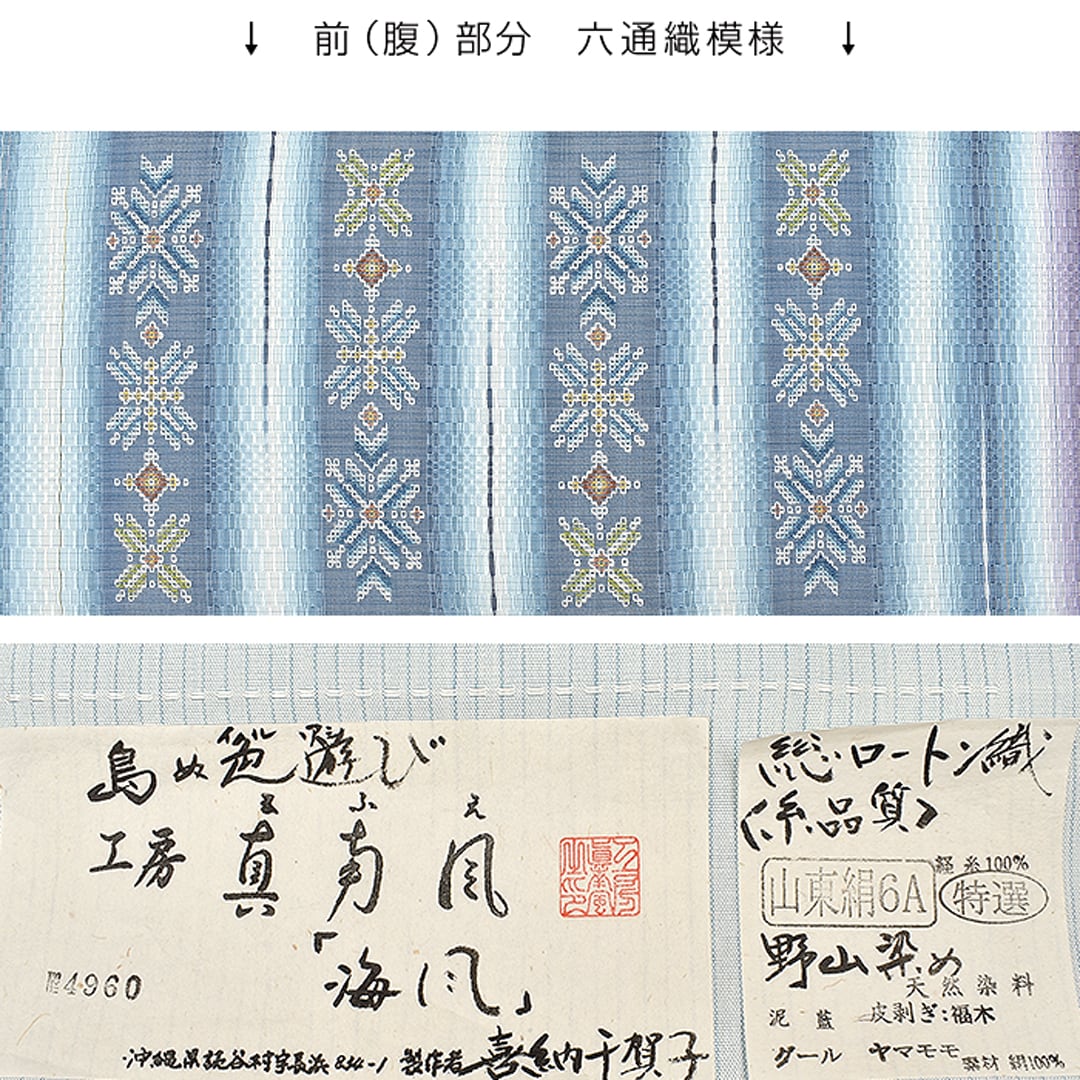 ↓ 前（腹）部分 六通織模様 ↓
島ぬ色遊び
ま ふ え
工房 真南風
「海風」
№4960
沖縄県読谷村字長浜844-1 製作者 喜納千賀子
総ロートン織
〈糸品質〉
経糸100%
山東絹6A 特選
野山染め
天然染料
泥藍 皮剥ぎ：福木
グール ヤマモモ
素材 絹100%